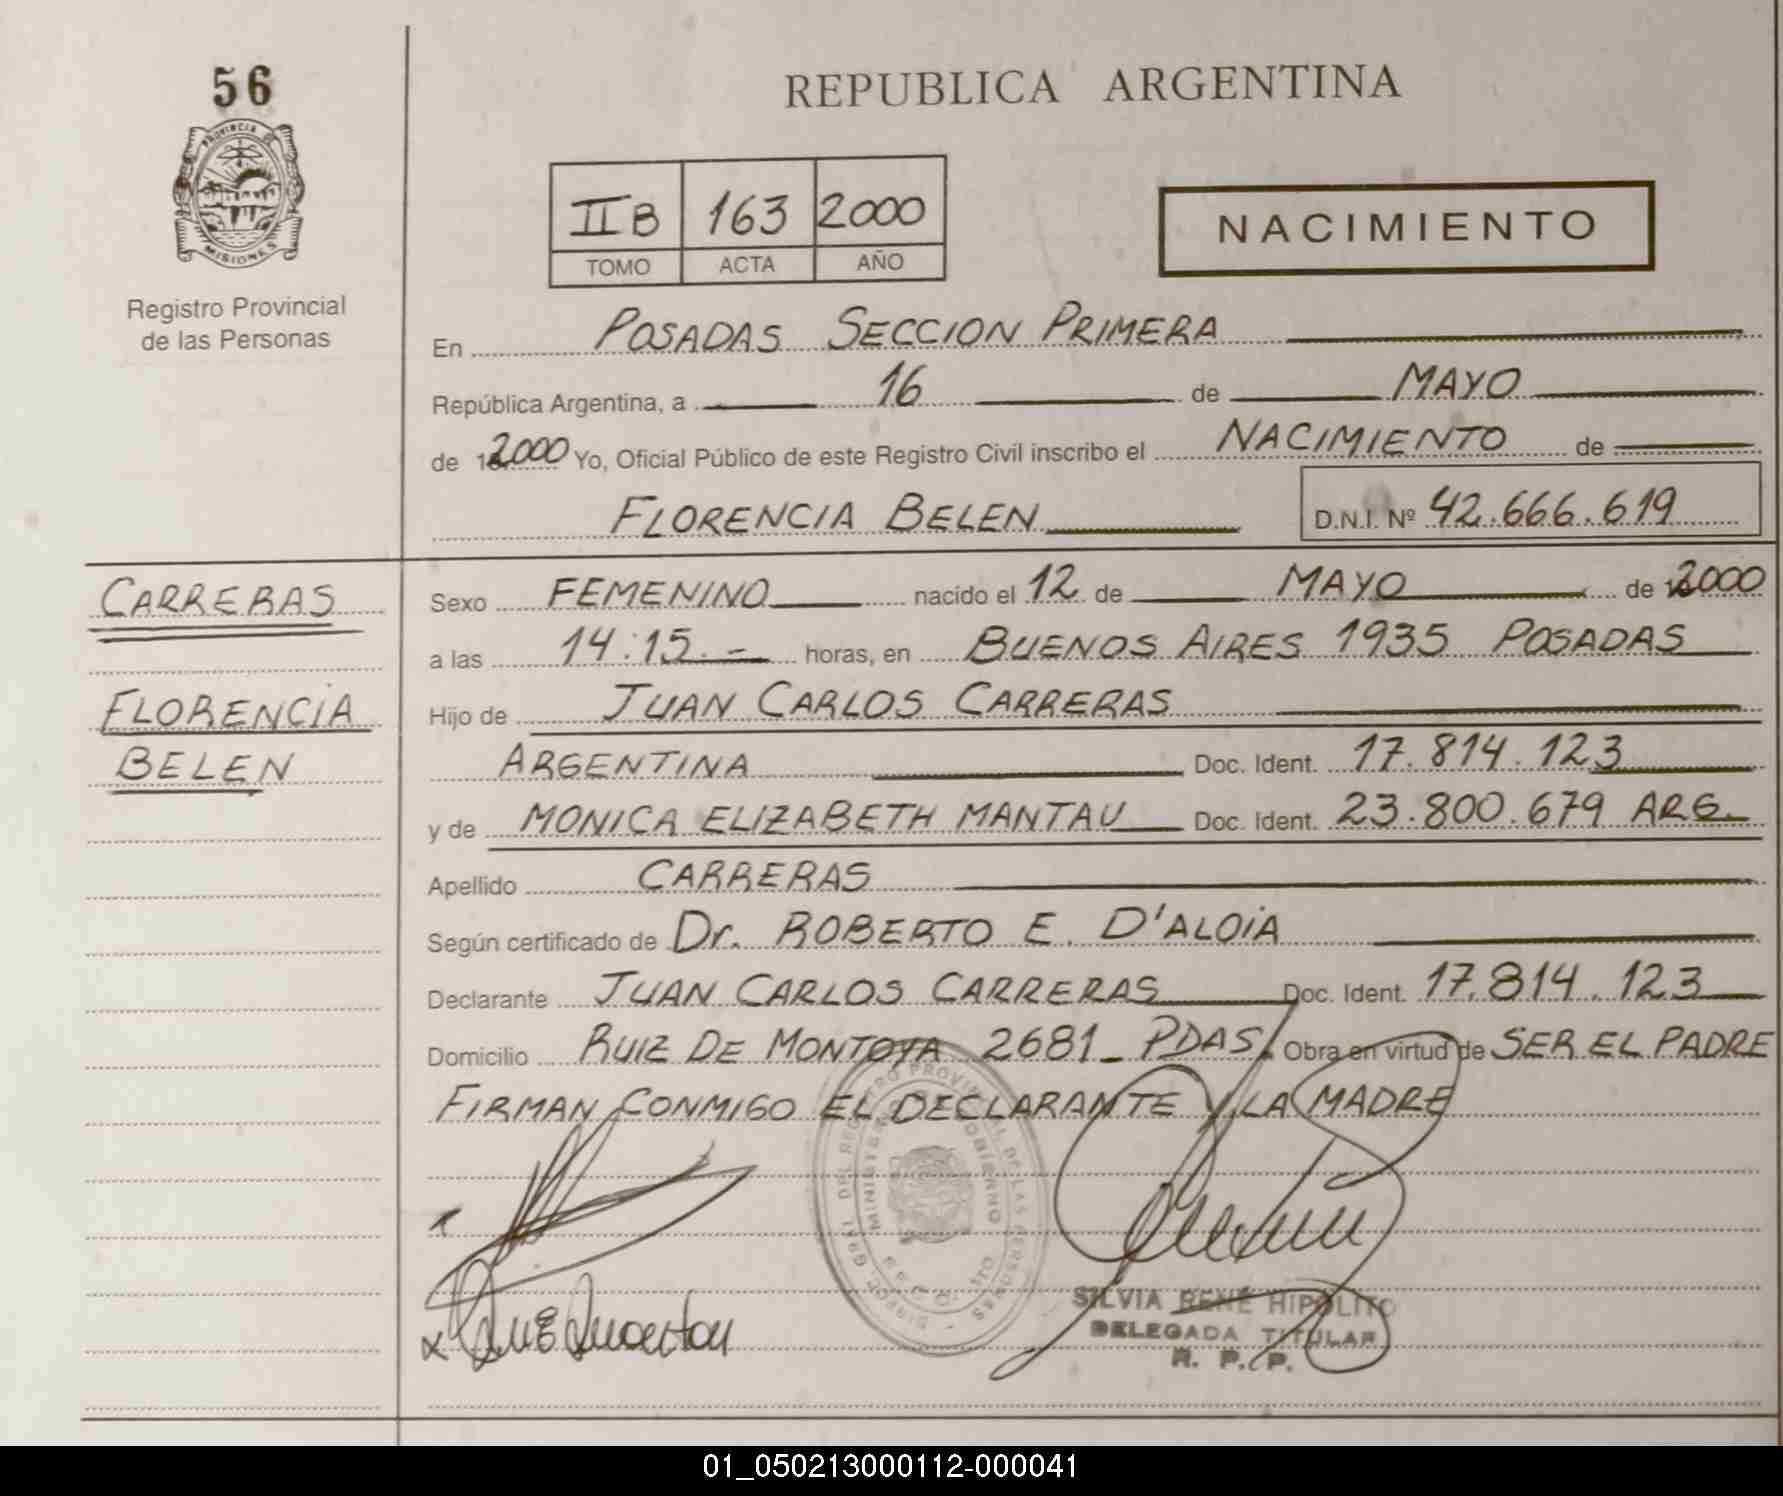 56
PROVINCIA DE
MISIONES
Registro Provincial
de las Personas
REPUBLICA ARGENTINA
II B 163 2000
TOMO ACTA AÑO
NACIMIENTO
En POSADAS SECCION PRIMERA
República Argentina, a 16 de MAYO
de 2000 Yo, Oficial Público de este Registro Civil inscribo el NACIMIENTO de
FLORENCIA BELEN D.N.I. Nº 42.666.619
CARRERAS
FLORENCIA
BELEN
Sexo FEMENINO nacido el 12 de MAYO de 2000
a las 14:15.- horas, en BUENOS AIRES 1935 POSADAS
Hijo de JUAN CARLOS CARRERAS
ARGENTINA Doc. Ident. 17.814.123
y de MONICA ELIZABETH MANTAU Doc. Ident. 23.800.679 ARG.
Apellido CARRERAS
Según certificado de Dr. ROBERTO E. D'ALOIA
Declarante JUAN CARLOS CARRERAS Doc. Ident. 17.814.123
Domicilio RUIZ DE MONTOYA 2681 - PDAS. Obra en virtud de SER EL PADRE
FIRMAN CONMIGO EL DECLARANTE Y LA MADRE
SILVIA RENE HIPOLITO
DELEGADA TITULAR
R. P. P.
01_050213000112-000041